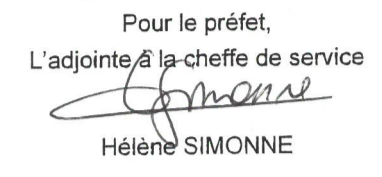 Pour le préfet,
L'adjointe à la cheffe de service
Simonne
Hélène SIMONNE